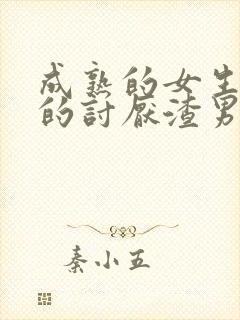 成熟的女生
的討厭渣男
秦小五